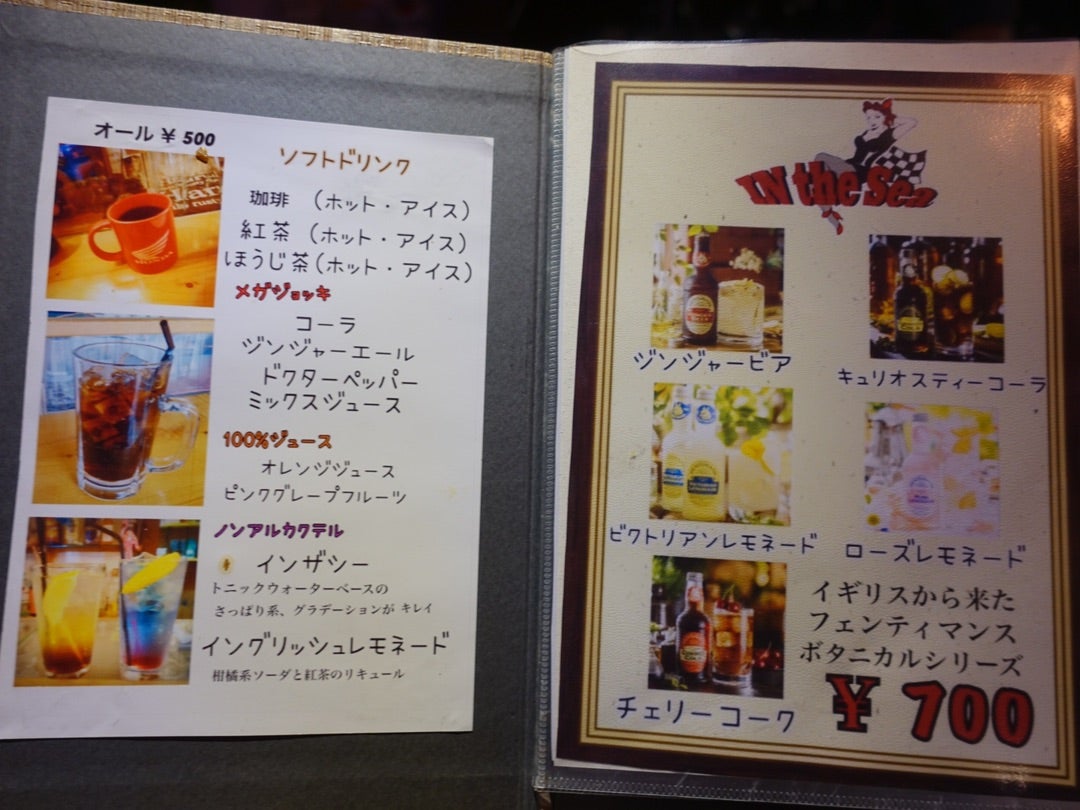 オール ¥ 500
ソフトドリンク
珈琲 (ホット・アイス)
紅茶 (ホット・アイス)
ほうじ茶(ホット・アイス)
メガジョッキ
コーラ
ジンジャーエール
ドクターペッパー
ミックスジュース
100%ジュース
オレンジジュース
ピンクグレープフルーツ
ノンアルカクテル
インザシー
トニックウォーターベースの
さっぱり系、グラデーションが キレイ
イングリッシュレモネード
柑橘系ソーダと紅茶のリキュール
IN the Sea
ジンジャービア
キュリオスティーコーラ
ビクトリアンレモネード
ローズレモネード
チェリーコーク
イギリスから来た
フェンティマンス
ボタニカルシリーズ
¥ 700